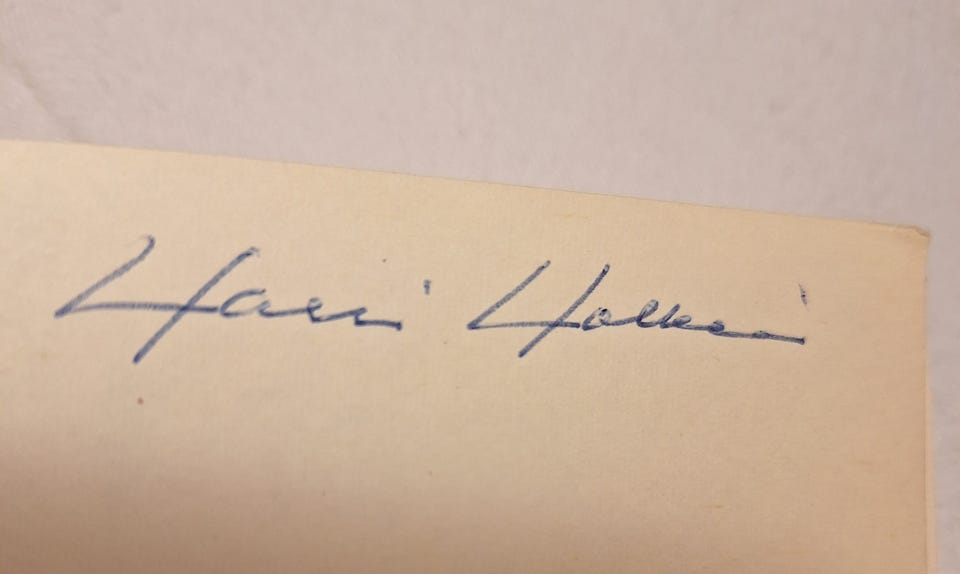 Harri Holkeri